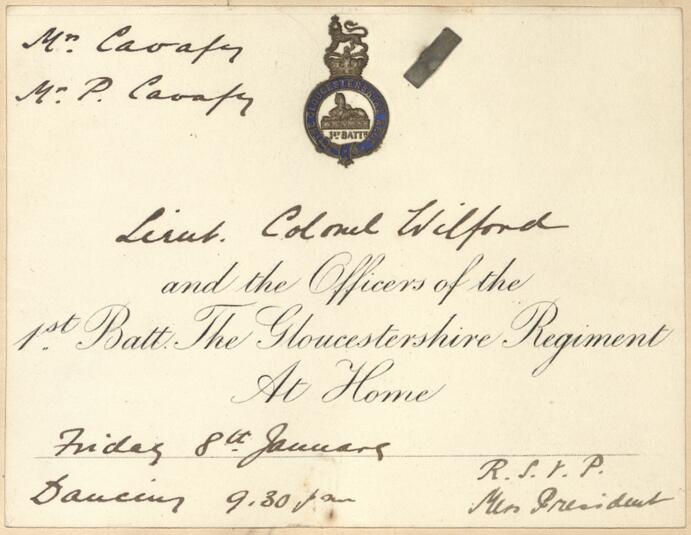 Mr. Cavafy
Mr. P. Cavafy
GLOUCESTERSHIRE
1ST BATTN
Lieut. Colonel Wilford
and the Officers of the
1st Batt. The Gloucestershire Regiment
At Home
Friday 8th January
R.S.V.P.
Dancing 9.30 pm
Mess President